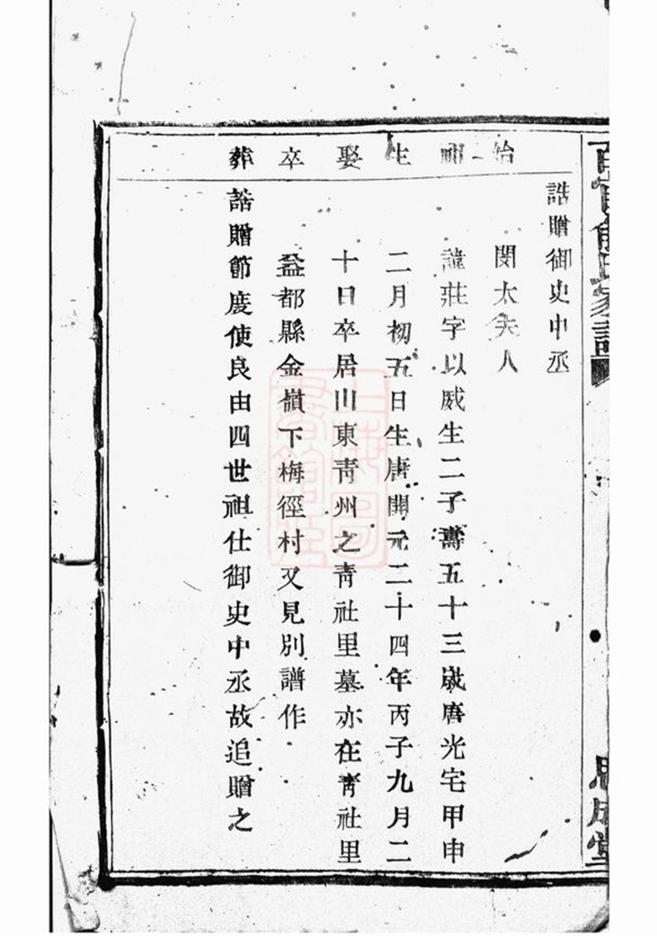 家譜
思成堂
始祖 生 娶 卒 葬
誥贈御史中丞
関太夫人
諱莊字以威生二子壽五十三歲唐光宅甲申
二月初五日生唐開元二十四年丙子九月二
十日卒居川東青州之青社里墓亦在青社里
益都縣金嶺下梅徑村又見別譜作
誥贈節度使良由四世祖仕御史中丞故追贈之
上海圖書館藏